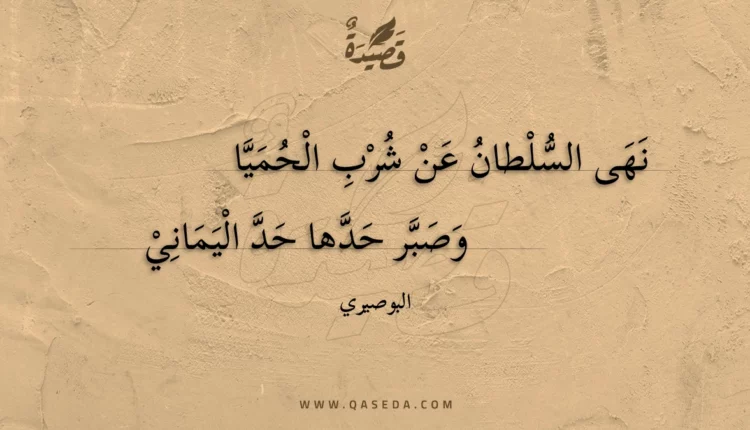 قَصِيدَةٌ
نَهَى السُّلْطانُ عَنْ شُرْبِ الْحُمَيَّا
وَصَبَّر حَدَّها حَدَّ الْيَمَانِيْ
البوصيري
WWW.QASEDA.COM